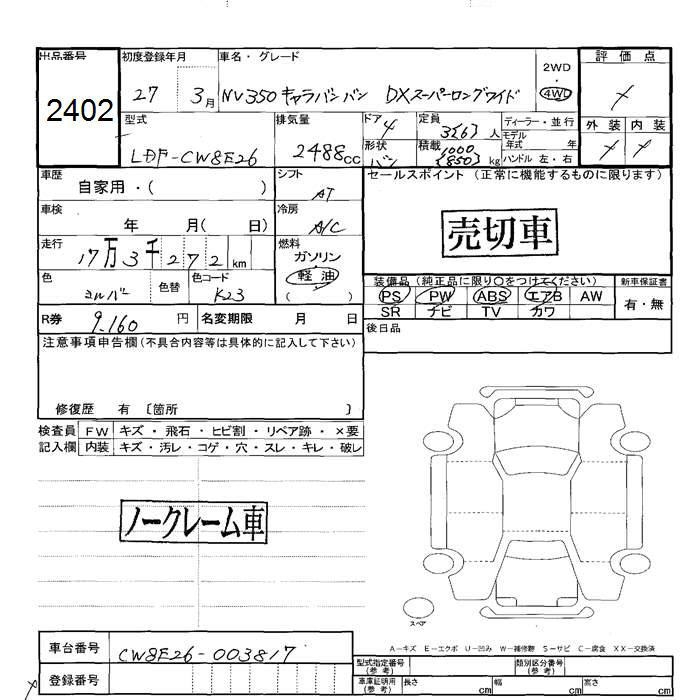 出品番号 初度登録年月 車名・グレード 2WD・4WD 評価点
2402 27 3月 NV350 キャラバンバン DXスーパーロングワイド メ
型式 排気量 ドア 4 定員 3(6)人 ディーラー・並行 外装 内装
LDF-CW8E26 2488cc 形状 バン 積載 1000(850)kg モデル年式 年 ハンドル 左・右 メ メ
車歴 シフト セールスポイント (正常に機能するものに限ります)
自家用・( ) AT
車検 冷房
年 月( 日) A/C 売切車
走行 燃料
17万3千272km ガソリン
軽油
( )
色 シルバー 色替 色コード K23
装備品(純正品に限り〇をつけてください) 新車保証書
PS PW ABS エアB AW 有・無
SR ナビ TV カワ
R券 9,160円 名変期限 月 日
後日品
注意事項申告欄(不具合内容等は具体的に記入して下さい)
修復歴 有 〔箇所 〕
検査員 FW キズ・飛石・ヒビ割・リペア跡・×要
記入欄 内装 キズ・汚レ・コゲ・穴・スレ・キレ・破レ
ノークレーム車
スペア
A-キズ E-エクボ U-凹み W-補修跡 S-サビ C-腐食 XX-交換済
車台番号 CW8E26-003817
登録番号
型式指定番号(参考) 類別区分番号(参考)
車庫証明用(参考) 長さ cm 幅 cm 高さ cm